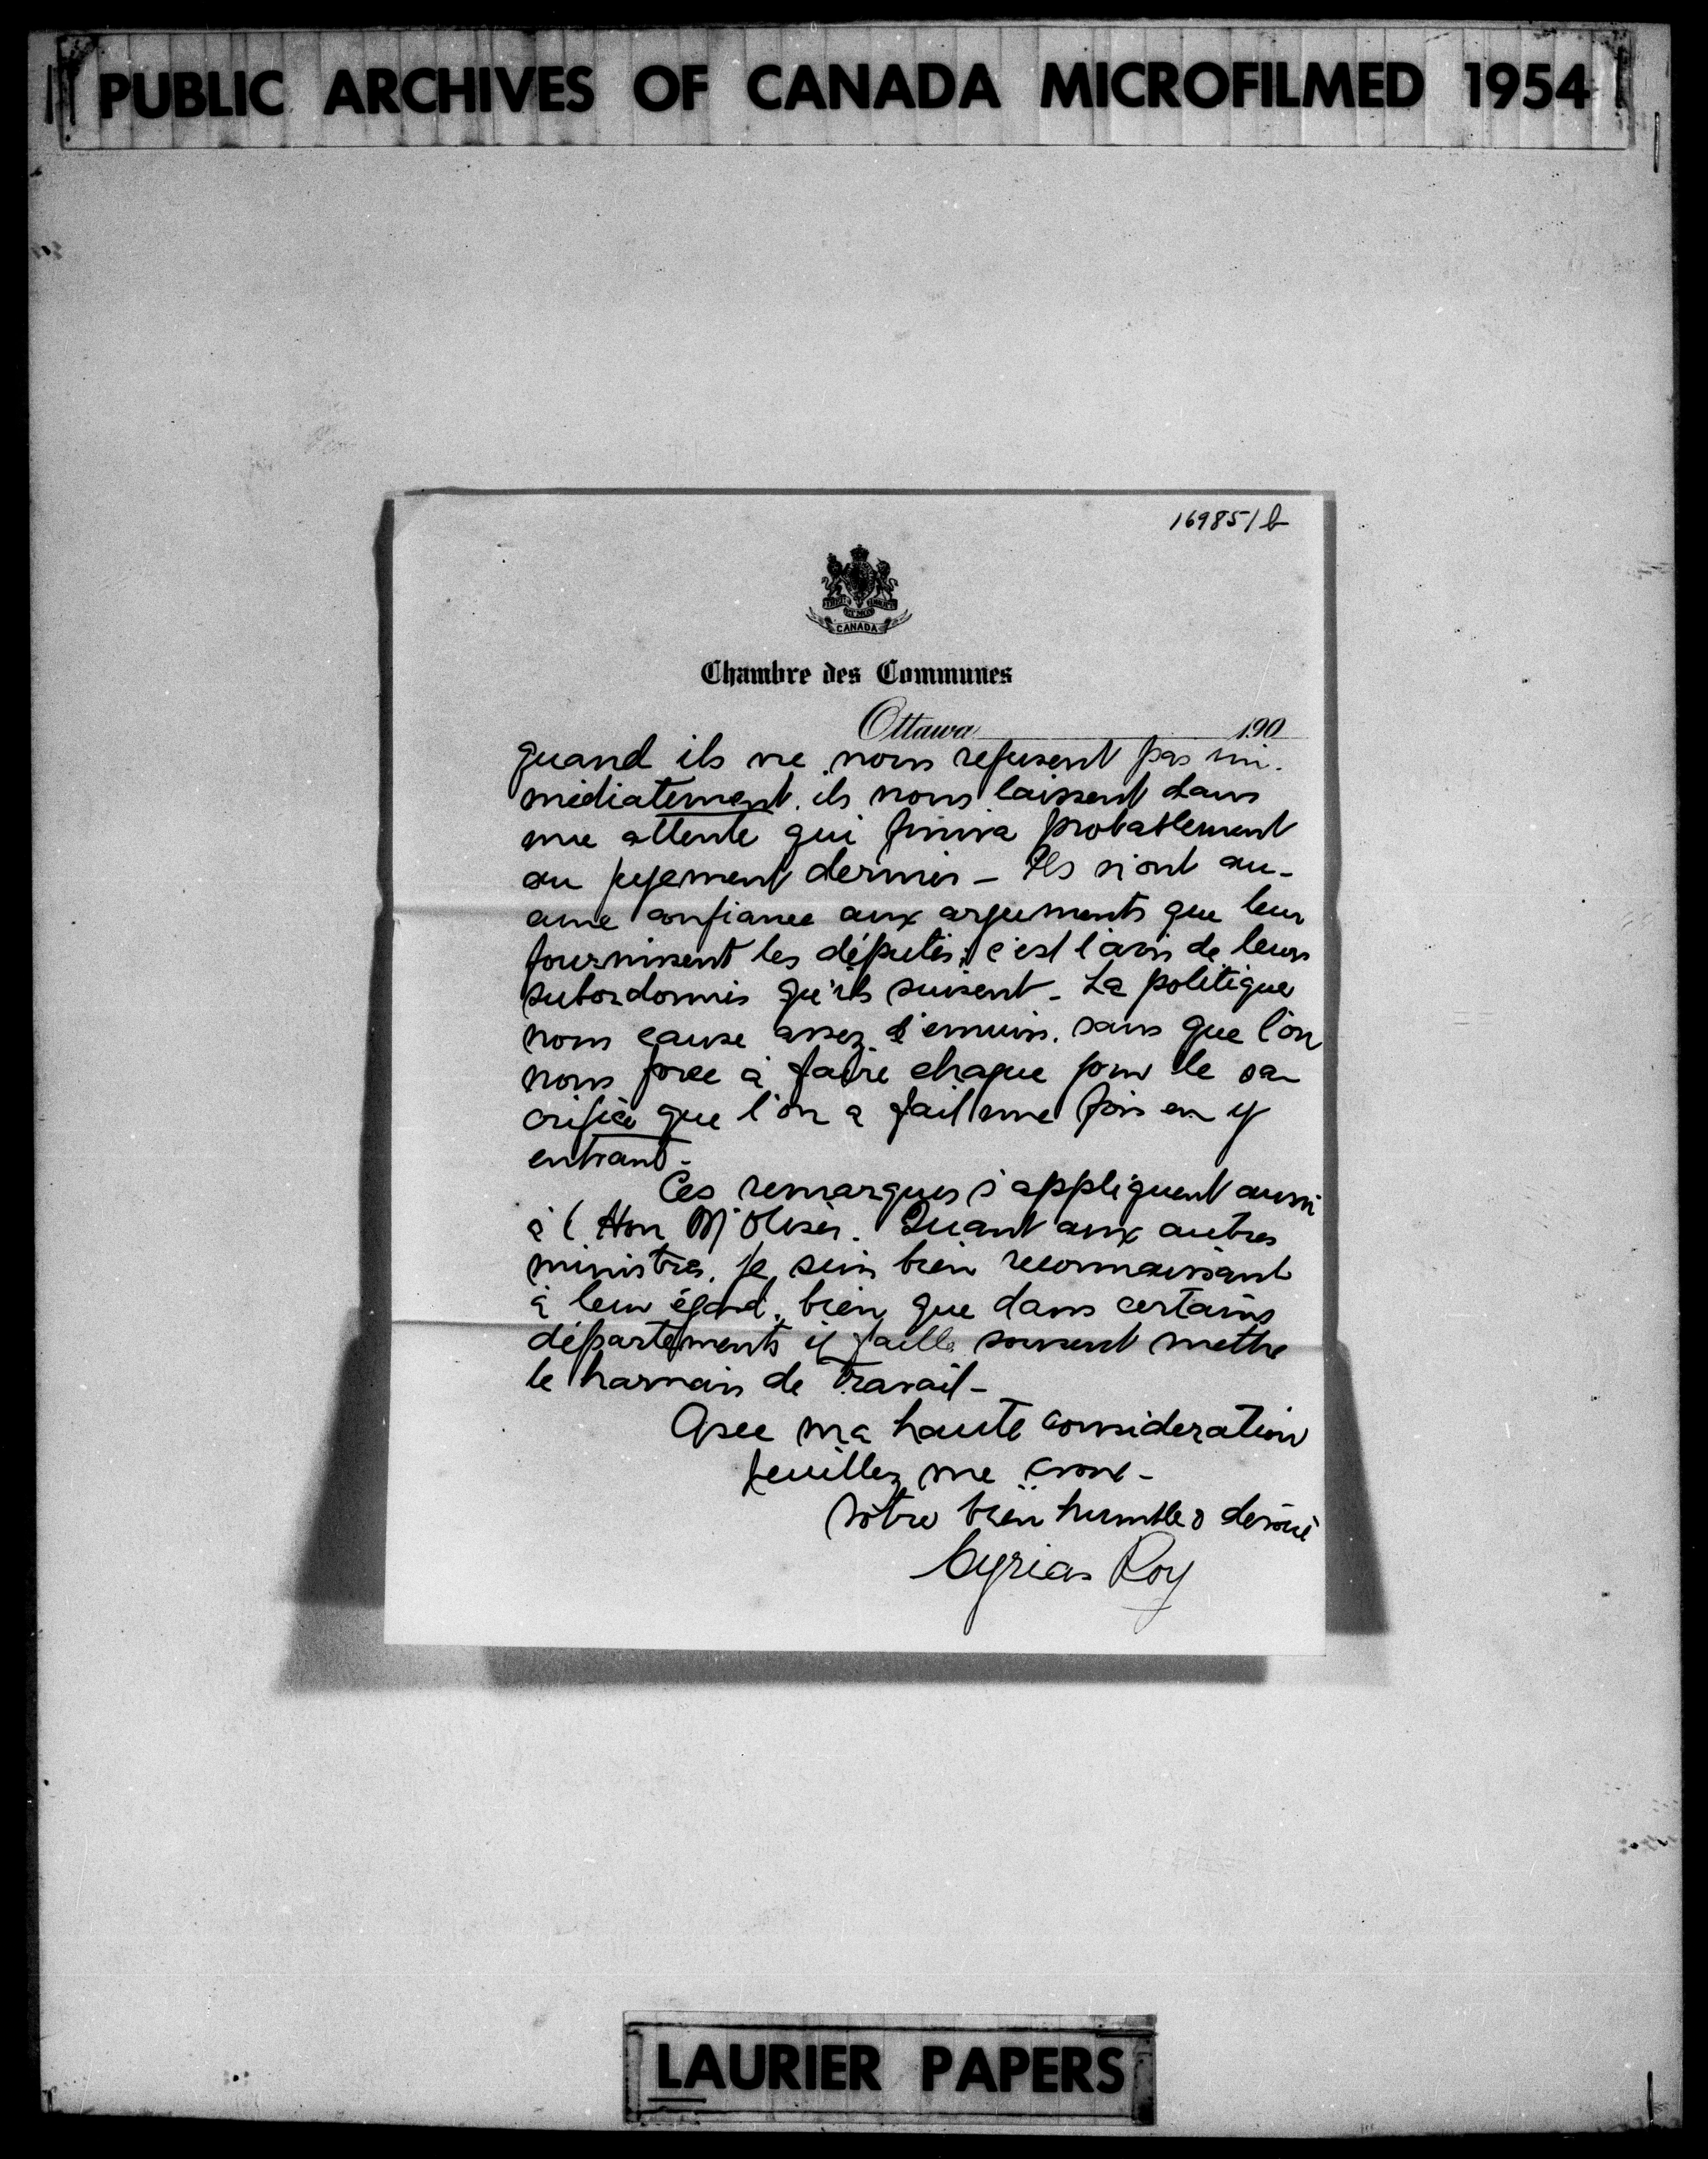 PUBLIC ARCHIVES OF CANADA MICROFILMED 1954
169851 b
CANADA
Chambre des Communes
Ottawa 190
quand ils ne nous refusent pas im-
médiatement, ils nous laissent dans
une attente qui finira probablement
au jugement dernier - Ils n'ont au-
cune confiance aux arguments que leur
fournissent les députés; c'est l'avis de leurs
subordonnés qu'ils suivent - La politique
nous cause assez d'ennuis, sans que l'on
nous force à faire chaque jour le sa-
crifice que l'on a fait une fois en y
entrant -
Ces remarques s'appliquent aussi
à l'Hon M Oliver. Quant aux autres
ministres, je suis bien reconnaissant
à leur égard, bien que dans certains
départements il faille souvent mettre
le harnais de travail -
Avec ma haute considération
veuillez me croire -
Votre bien humble & dévoué
Cyrias Roy
LAURIER PAPERS